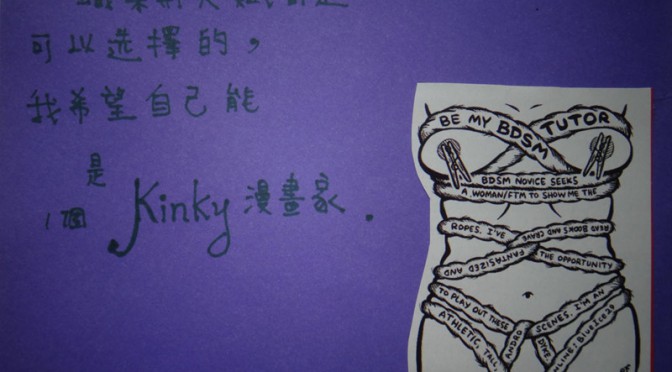 可以选擇的，
我希望自己能
是
1個 Kinky 漫畫家.
BE MY BDSM TUTOR
BDSM NOVICE SEEKS
A WOMAN/FTM TO SHOW ME THE
ROPES. I'VE
READ BOOKS AND CRAVE
THE OPPORTUNITY
FANTASIZED AND
TO PLAY OUT THESE
SCENES. I'M AN
ATHLETIC, TALL,
ANDRO
DYKE